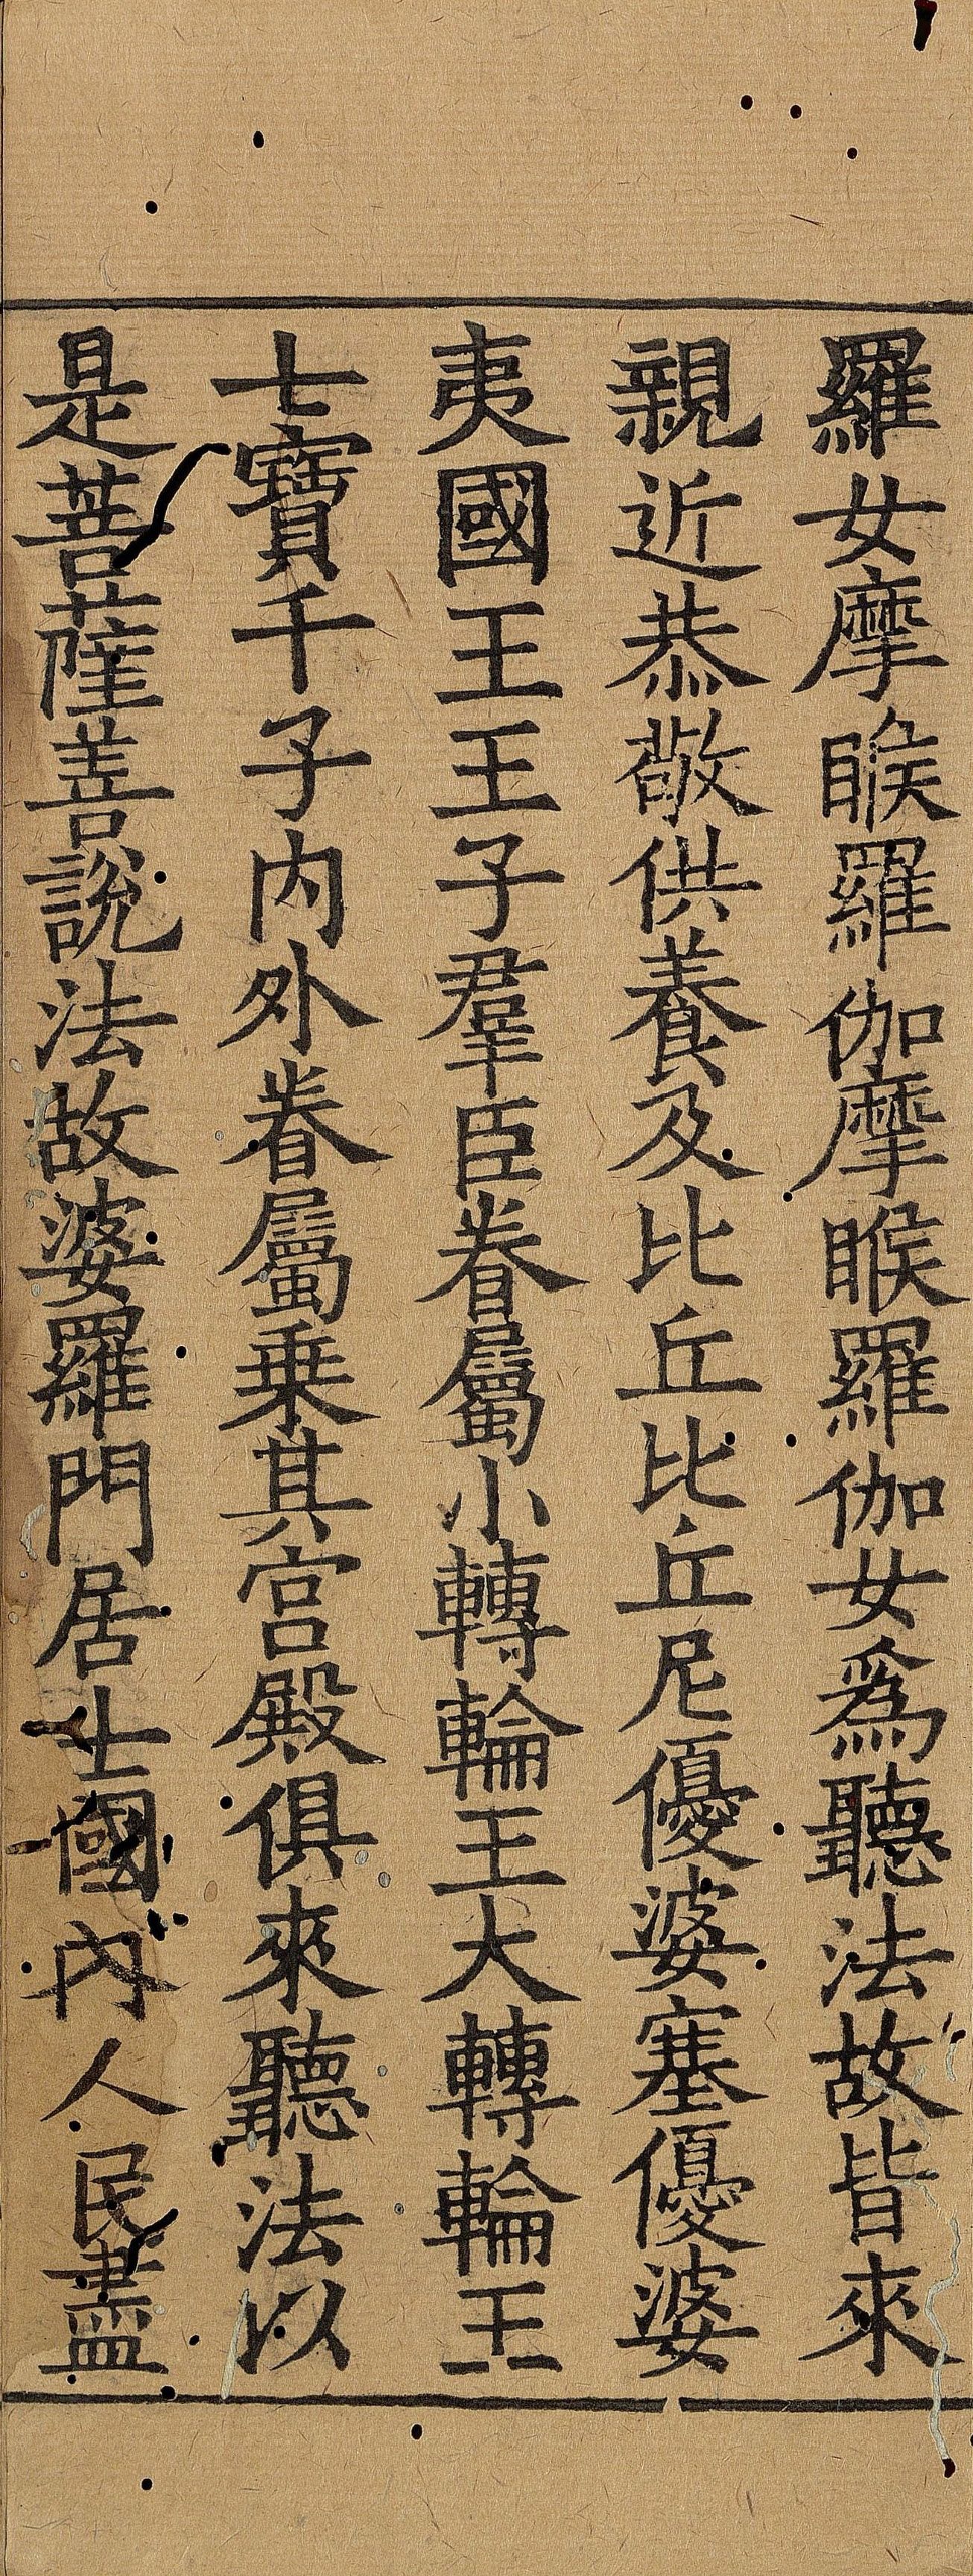 羅女摩睺羅伽摩睺羅伽女爲聽法故皆來
親近恭敬供養及比丘比丘尼優婆塞優婆
夷國王王子羣臣眷屬小轉輪王大轉輪王
七寶千子內外眷屬乗其宮殿俱來聽法以
是菩薩善說法故婆羅門居士國內人民盡